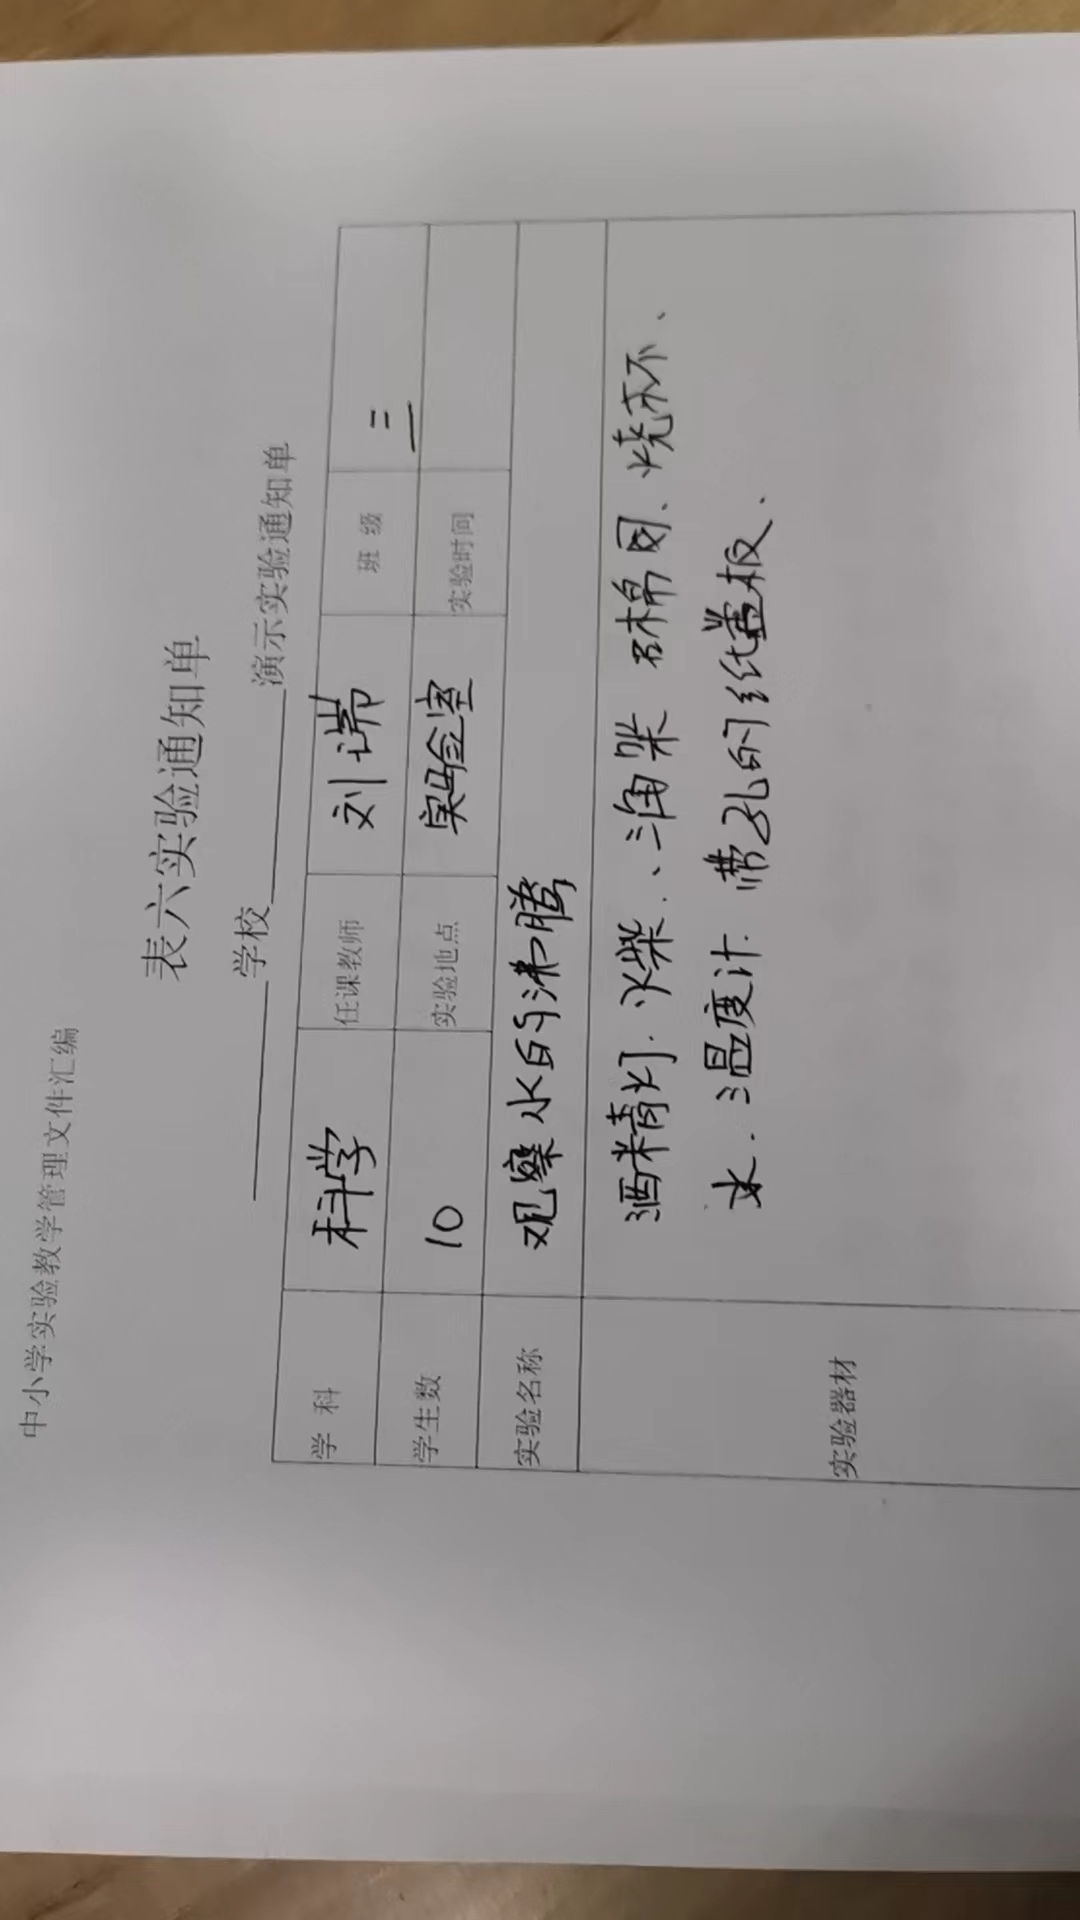 中小学实验教学管理文件汇编
表六实验通知单
学校 演示实验通知单
学 科 科学 任课教师 刘端 班 级 三
学生数 10 实验地点 实验室 实验时间
实验名称 观察水的沸腾
实验器材 酒精灯、火柴、三角架 石棉网、烧杯、
水、温度计、带孔的纸盖板.